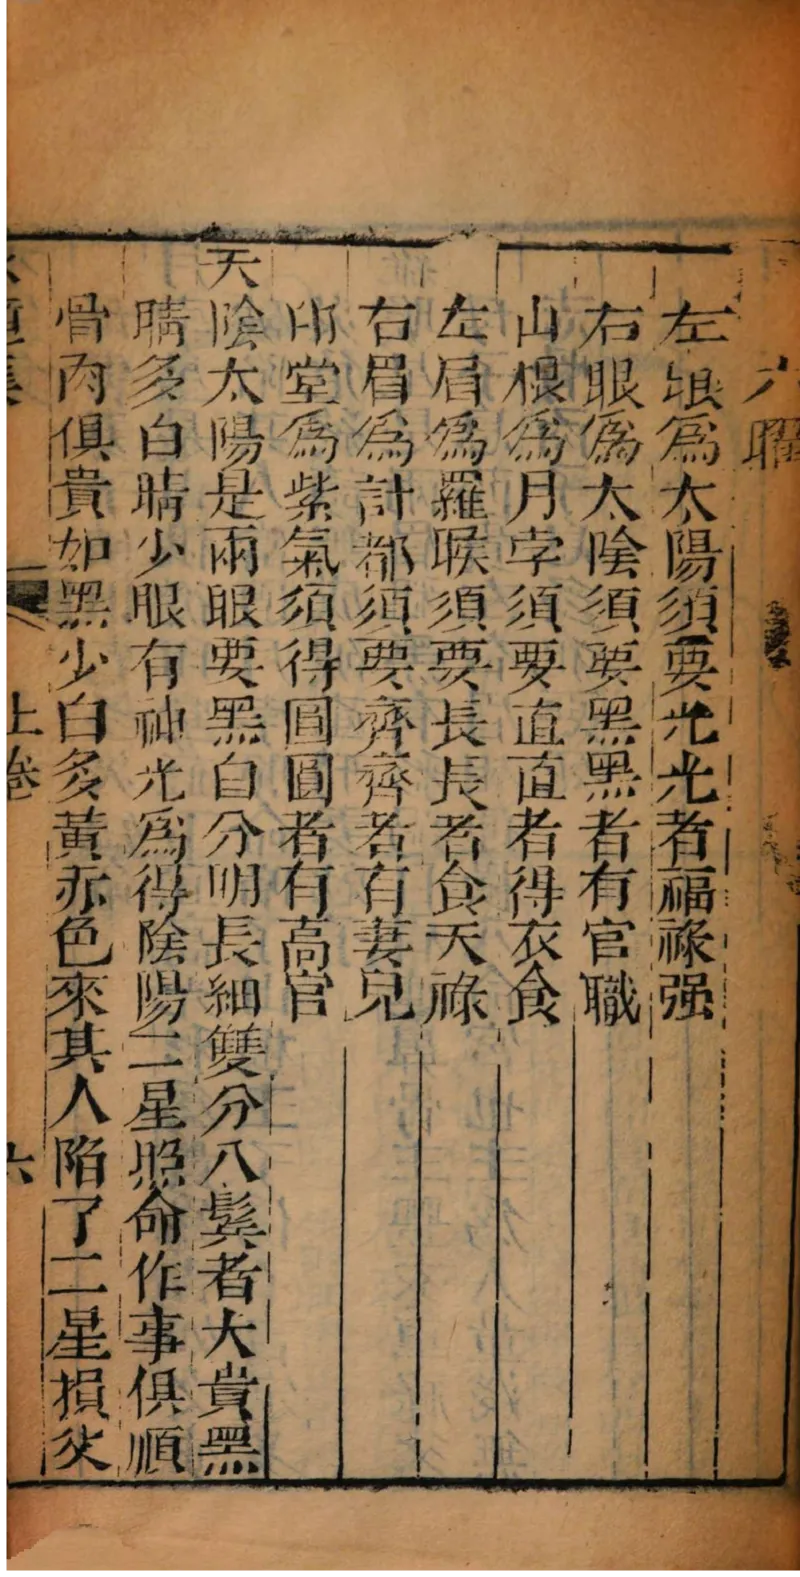 六曜
左眼爲太陽須要光光者福祿强
右眼爲太陰須要黑黑者有官職
山根爲月孛須要直直者得衣食
左眉爲羅睺須要長長者食天祿
右眉爲計都須要齊齊者有妻兒
印堂爲紫氣須得圓圓者有高官
天陰太陽是兩眼要黑白分明長細雙分入鬂者大貴黑
睛多白睛少眼有神光爲得陰陽二星照命作事俱順
骨肉俱貴如黑少白多黃赤色來其人陷了二星損父
上卷
六